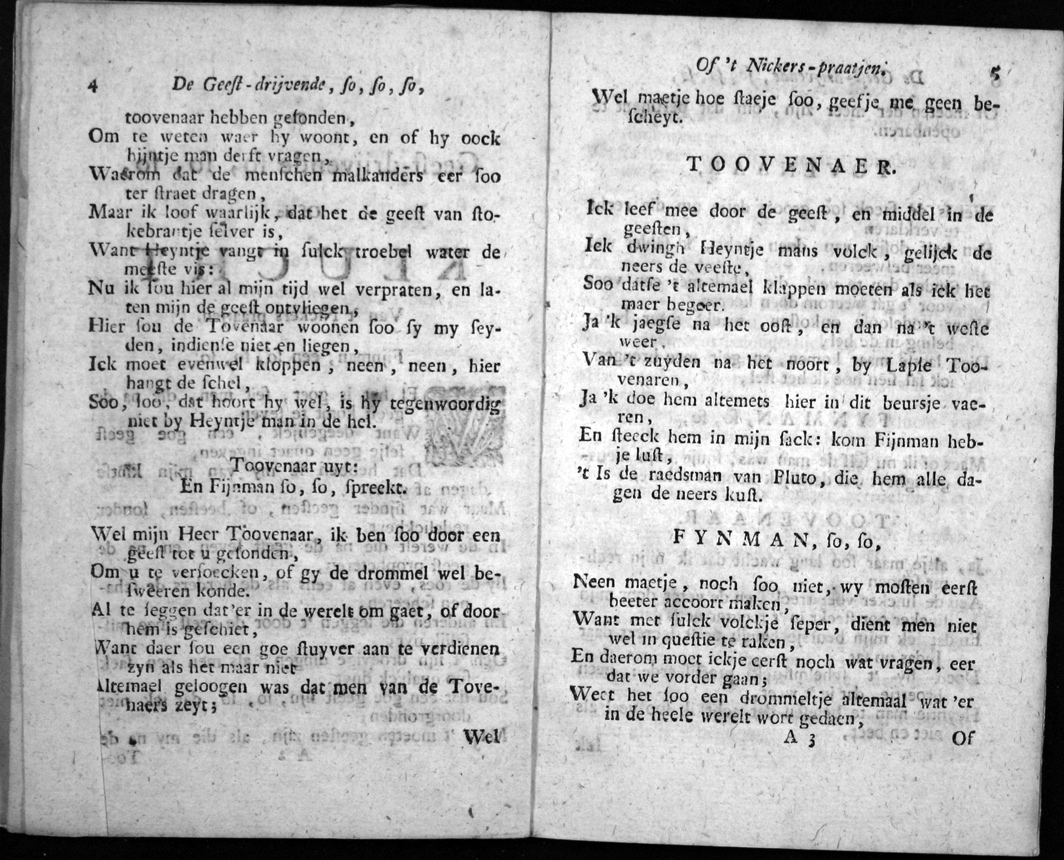 4 De Geeſt-drijvende, ſo, ſo, ſo,
toovenaar hebben geſonden,
Om te weten waer hy woont, en of hy oock
hijntje man derſt vragen,
Waerom dat de menſchen malkanders eer ſoo
ter ſtraet dragen,
Maar ik loof waarlijk, dat het de geeſt van ſto-
kebrantje ſelver is,
Want Heyntje vangt in ſulck troebel water de
meeſte vis:
Nu ik ſou hier al mijn tijd wel verpraten, en la-
ten mijn de geeſt ontvliegen,
Hier ſou de Tovenaar woonen ſoo ſy my ſey-
den, indienſe niet en liegen,
Ick moet evenwel kloppen, neen, neen, hier
hangt de ſchel,
Soo, ſoo, dat hoort hy wel, is hy tegenwoordig
niet by Heyntje man in de hel.
Toovenaar uyt:
En Fijnman ſo, ſo, ſpreekt.
Wel mijn Heer Toovenaar, ik ben ſoo door een
geeſt tot u geſonden,
Om u te verſoecken, of gy de drommel wel be-
ſweeren konde.
Al te ſeggen dat'er in de werelt om gaet, of door
hem is geſchiet,
Want daer ſou een goe ſtuyver aan te verdienen
zyn als het maar niet
Altemael geloogen was dat men van de Tove-
naers zeyt;
Wel
Of 't Nickers-praatjen. 5
Wel maetje hoe ſtaeje ſoo, geefje me geen be-
ſcheyt.
TOOVENAER.
Ick leef mee door de geeſt, en middel in de
geeſten,
Ick dwingh Heyntje mans volck, gelijck de
neers de veeſte,
Soo datſe 't altemael klappen moeten als ick het
maer begeer.
Ja 'k jaegſe na het ooſt, en dan na 't weſte
weer,
Van 't zuyden na het noort, by Lapſe Too-
venaren,
Ja 'k doe hem altemets hier in dit beursje vae-
ren,
En ſteeck hem in mijn ſack: kom Fijnman heb-
je luſt,
't Is de raedsman van Pluto, die hem alle da-
gen de neers kuſt.
FYNMAN, ſo, ſo,
Neen maetje, noch ſoo niet, wy moſten eerſt
beeter accoort maken,
Want met ſulck volckje ſeper, dient men niet
wel in queſtie te raken,
En daerom moet ickje eerſt noch wat vragen, eer
dat we vorder gaan;
Weet het ſoo een drommeltje altemaal wat 'er
in de heele werelt wort gedaen,
A 3 Of